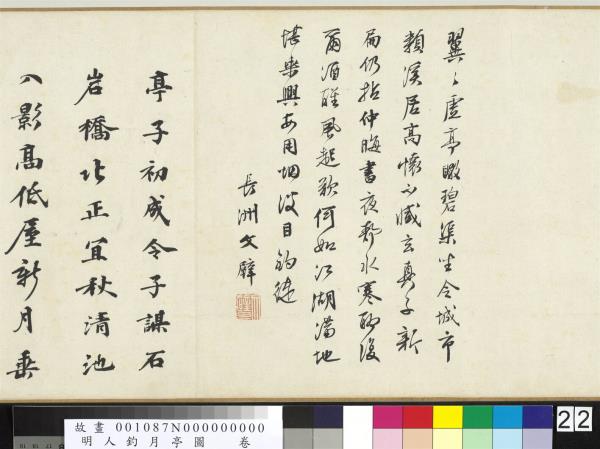 翼〻虛亭瞰碧渠坐令城市
類溪居高懷不減玄真子新
扁仍拈仲晦書夜静水寒聊復
爾酒醒風起欲何如江湖滿地
堪乘興安用烟波目釣徒
長洲文璧
亭子初成令子謀石
岩橋北正宜秋清池
入影高低屋新月垂
故畫 001087N000000000
明人釣月亭圖 卷
22